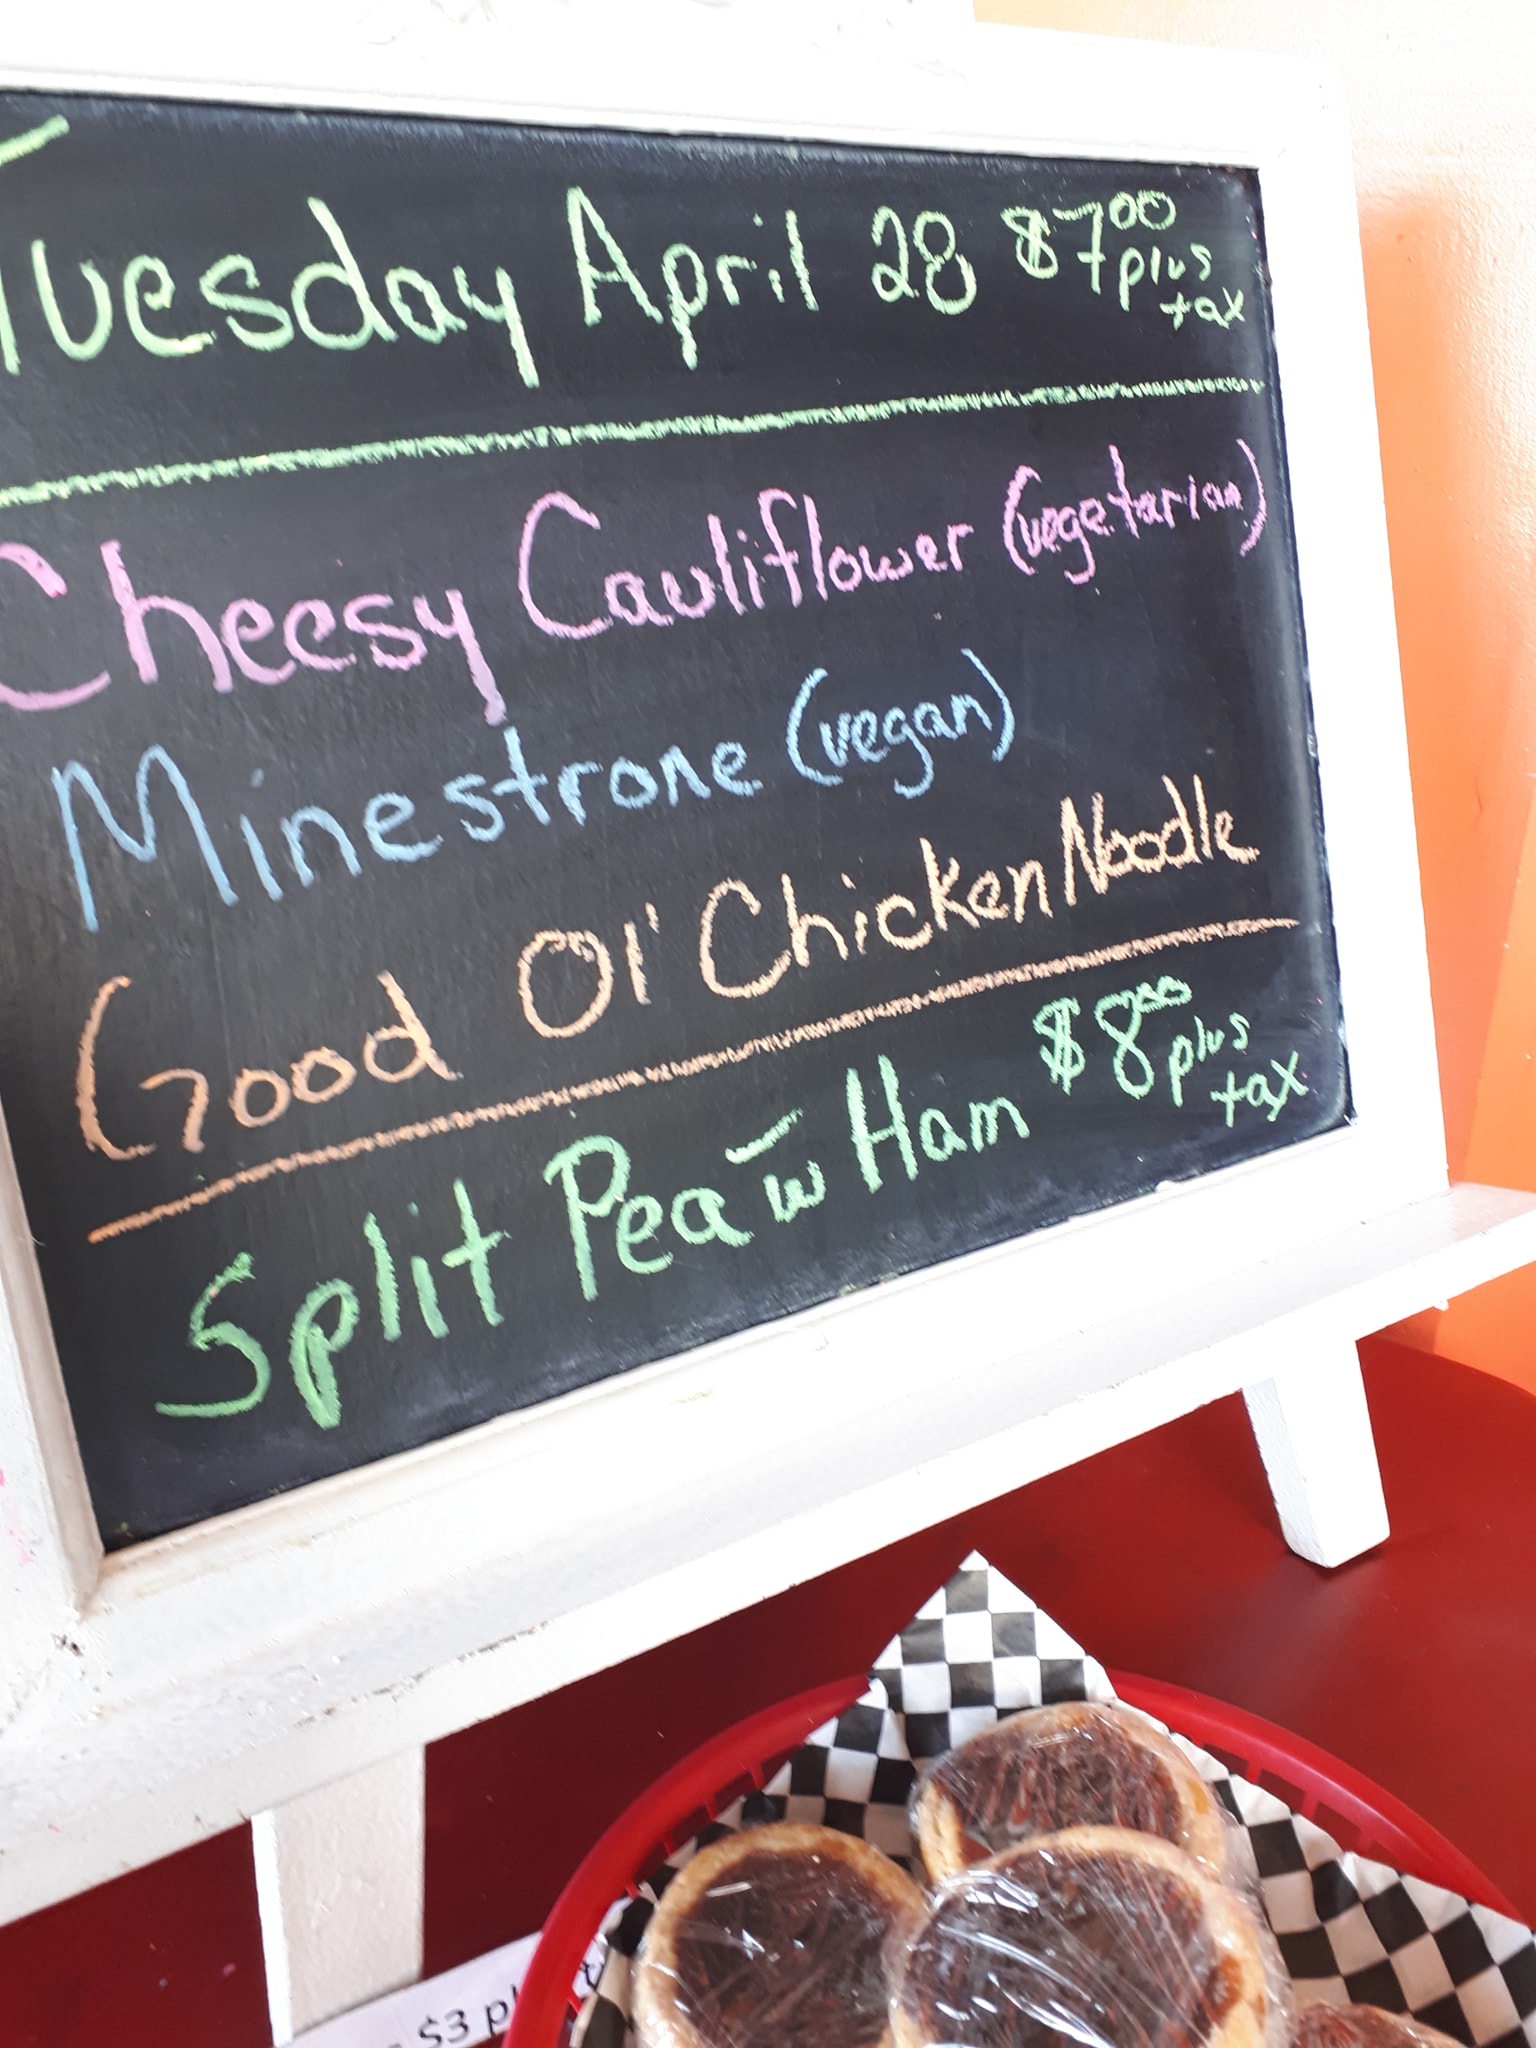 Tuesday April 28 $7.00 plus tax
Cheesy Cauliflower (vegetarian)
Minestrone (vegan)
Good Ol' Chicken Noodle
Split Pea w Ham $8.00 plus tax
$3